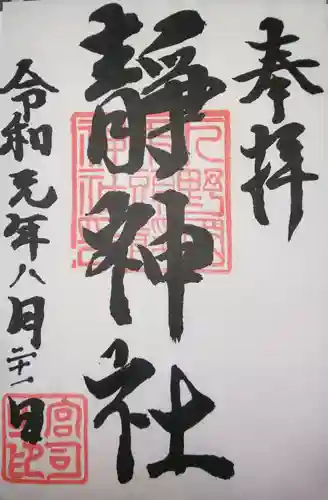 奉拝
靜神社
令和元年八月二十一日
宮司